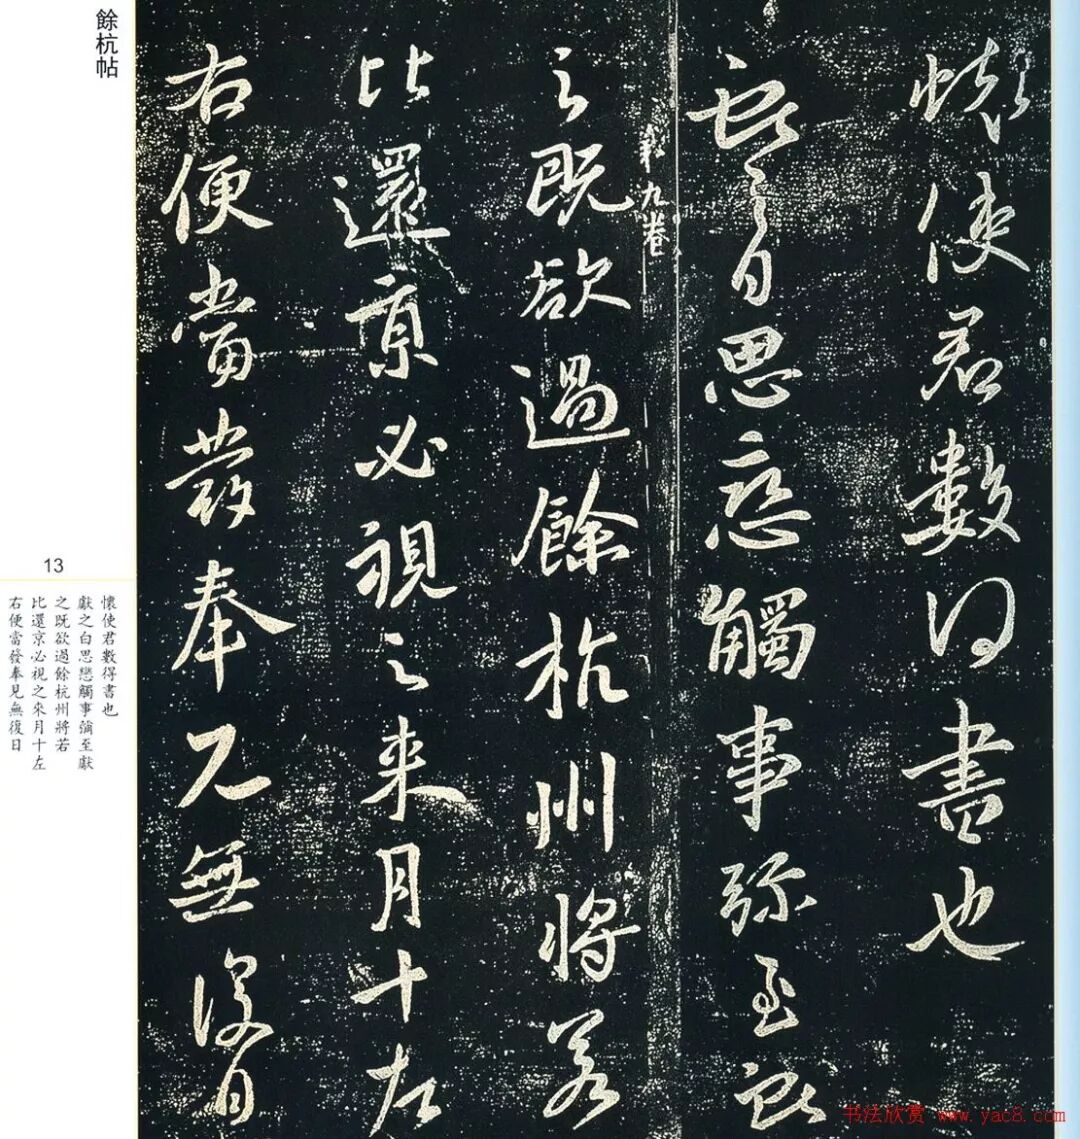 餘杭帖
懷使君數得書也
獻之白思戀觸事彌至獻
第九卷
之既欲過餘杭州將若
比還京必視之來月十左
右便當發奉見無復日
13
懷使君數得書也
獻之白思戀觸事彌至獻
之既欲過餘杭州將若
比還京必視之來月十左
右便當發奉見無復日
书法欣赏 www.yac8.com